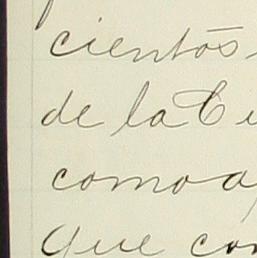 cientos
de la Ci
como a
que con